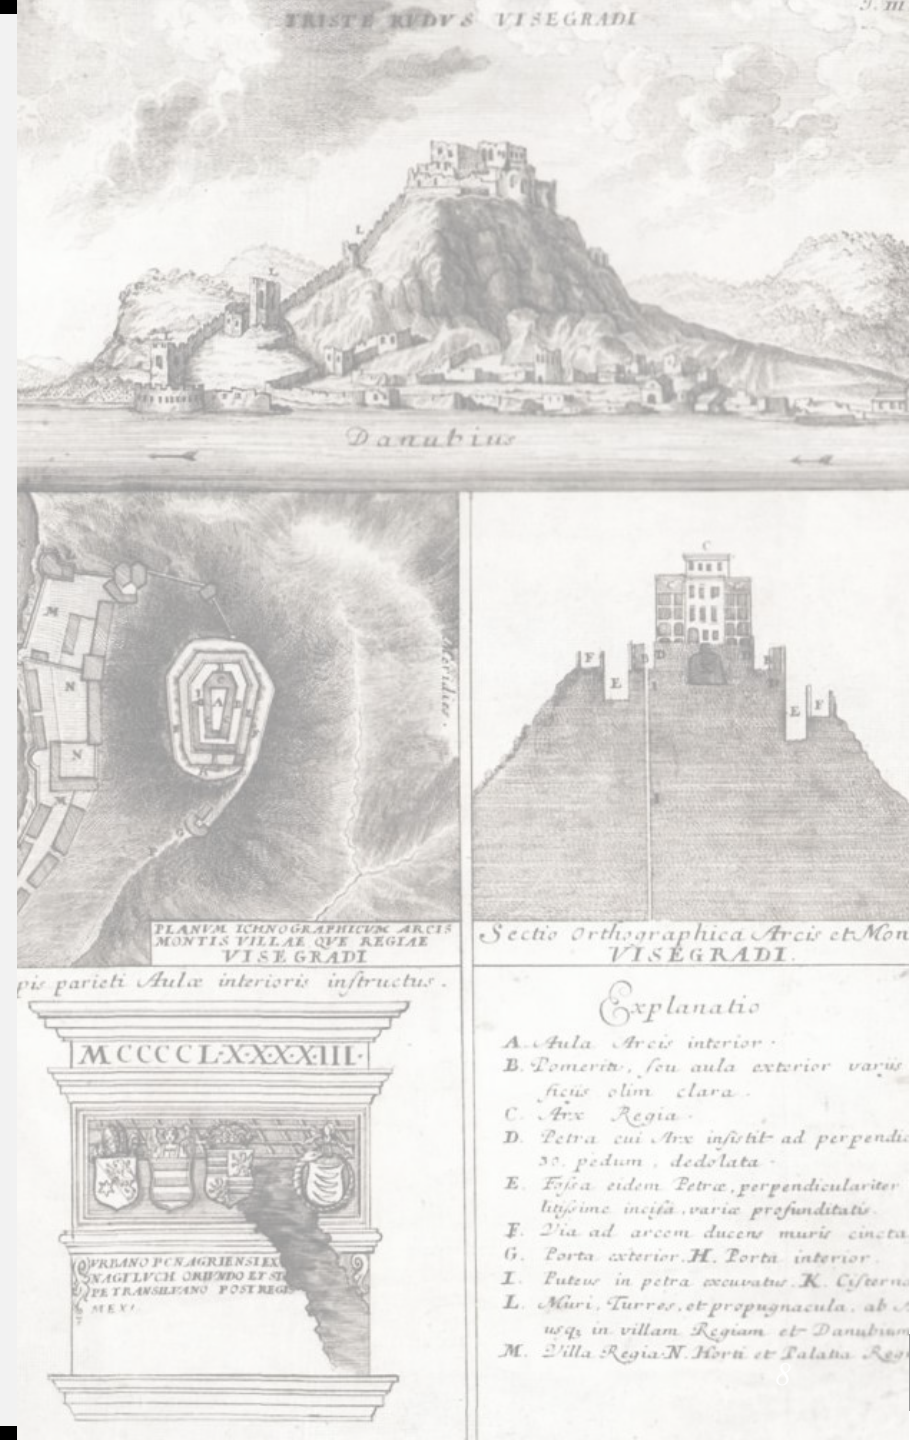 TRISTE RVDVS VISEGRADI
T. III
L
L
Danubius
M
N
N
M
A
G
Meridies.
C
F
D
E
E
F
I
PLANVM ICHNOGRAPHICVM ARCIS
MONTIS VILLAE QVE REGIAE
VISEGRADI
Sectio Orthographica Arcis et Mon
VISEGRADI.
pis parieti Aulæ interioris instructus.
MCCCCLXXXXIII.
VRBANO
NAGI LVCH ORIVNDO ET
PE TRANSILVANO POST REGIS
Explanatio
A. Aula Arcis interior.
B. Pomeria, seu aula exterior variis
ficiis olim clara.
C. Arx Regia.
D. Petra cui Arx insistit ad perpendic
30. pedum, dedolata.
E. Fossa eidem Petræ, perpendiculariter
litissime incisa, variæ profunditatis.
F. Via ad arcem ducens muris cincta
G. Porta exterior. H. Porta interior.
I. Puteus in petra excavatus. K. Cisterna
L. Muri, Turres, et propugnacula, ab A
usq; in villam Regiam et Danubium
M. Villa Regia. N. Horti et Palatia Reg